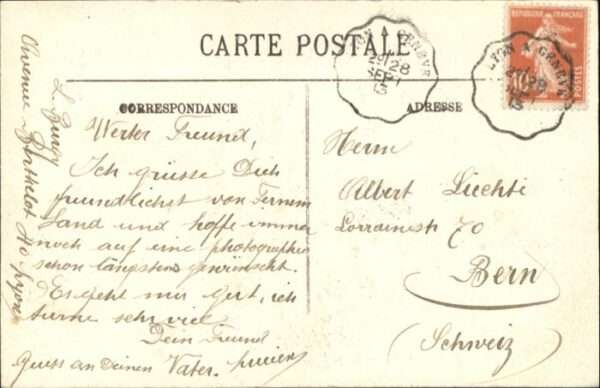 CARTE POSTALE
CORRESPONDANCE
ADRESSE
Werter Freund,
Ich grüsse Dich
freundlichst von Fernem
Land und hoffe immer
noch auf eine photographie
schon längstens gewünscht.
Es geht mir gut, ich
turne sehr viel
Dein Freund
Gruss an Deinen Vater. Lucien
Avenue Berthelot 40 Lyon
Herrn
Albert Liechti
Lorrainestr 70
Bern
(Schweiz)
REPUBLIQUE FRANÇAISE
10
POSTES
LYON A GENEVE
28
SEPT
13
GENEVE
28
SEPT
13